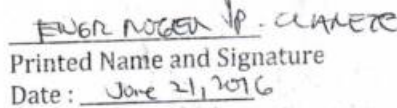 ENGR ROGER JP. CLARETE
Printed Name and Signature
Date : June 21, 2016